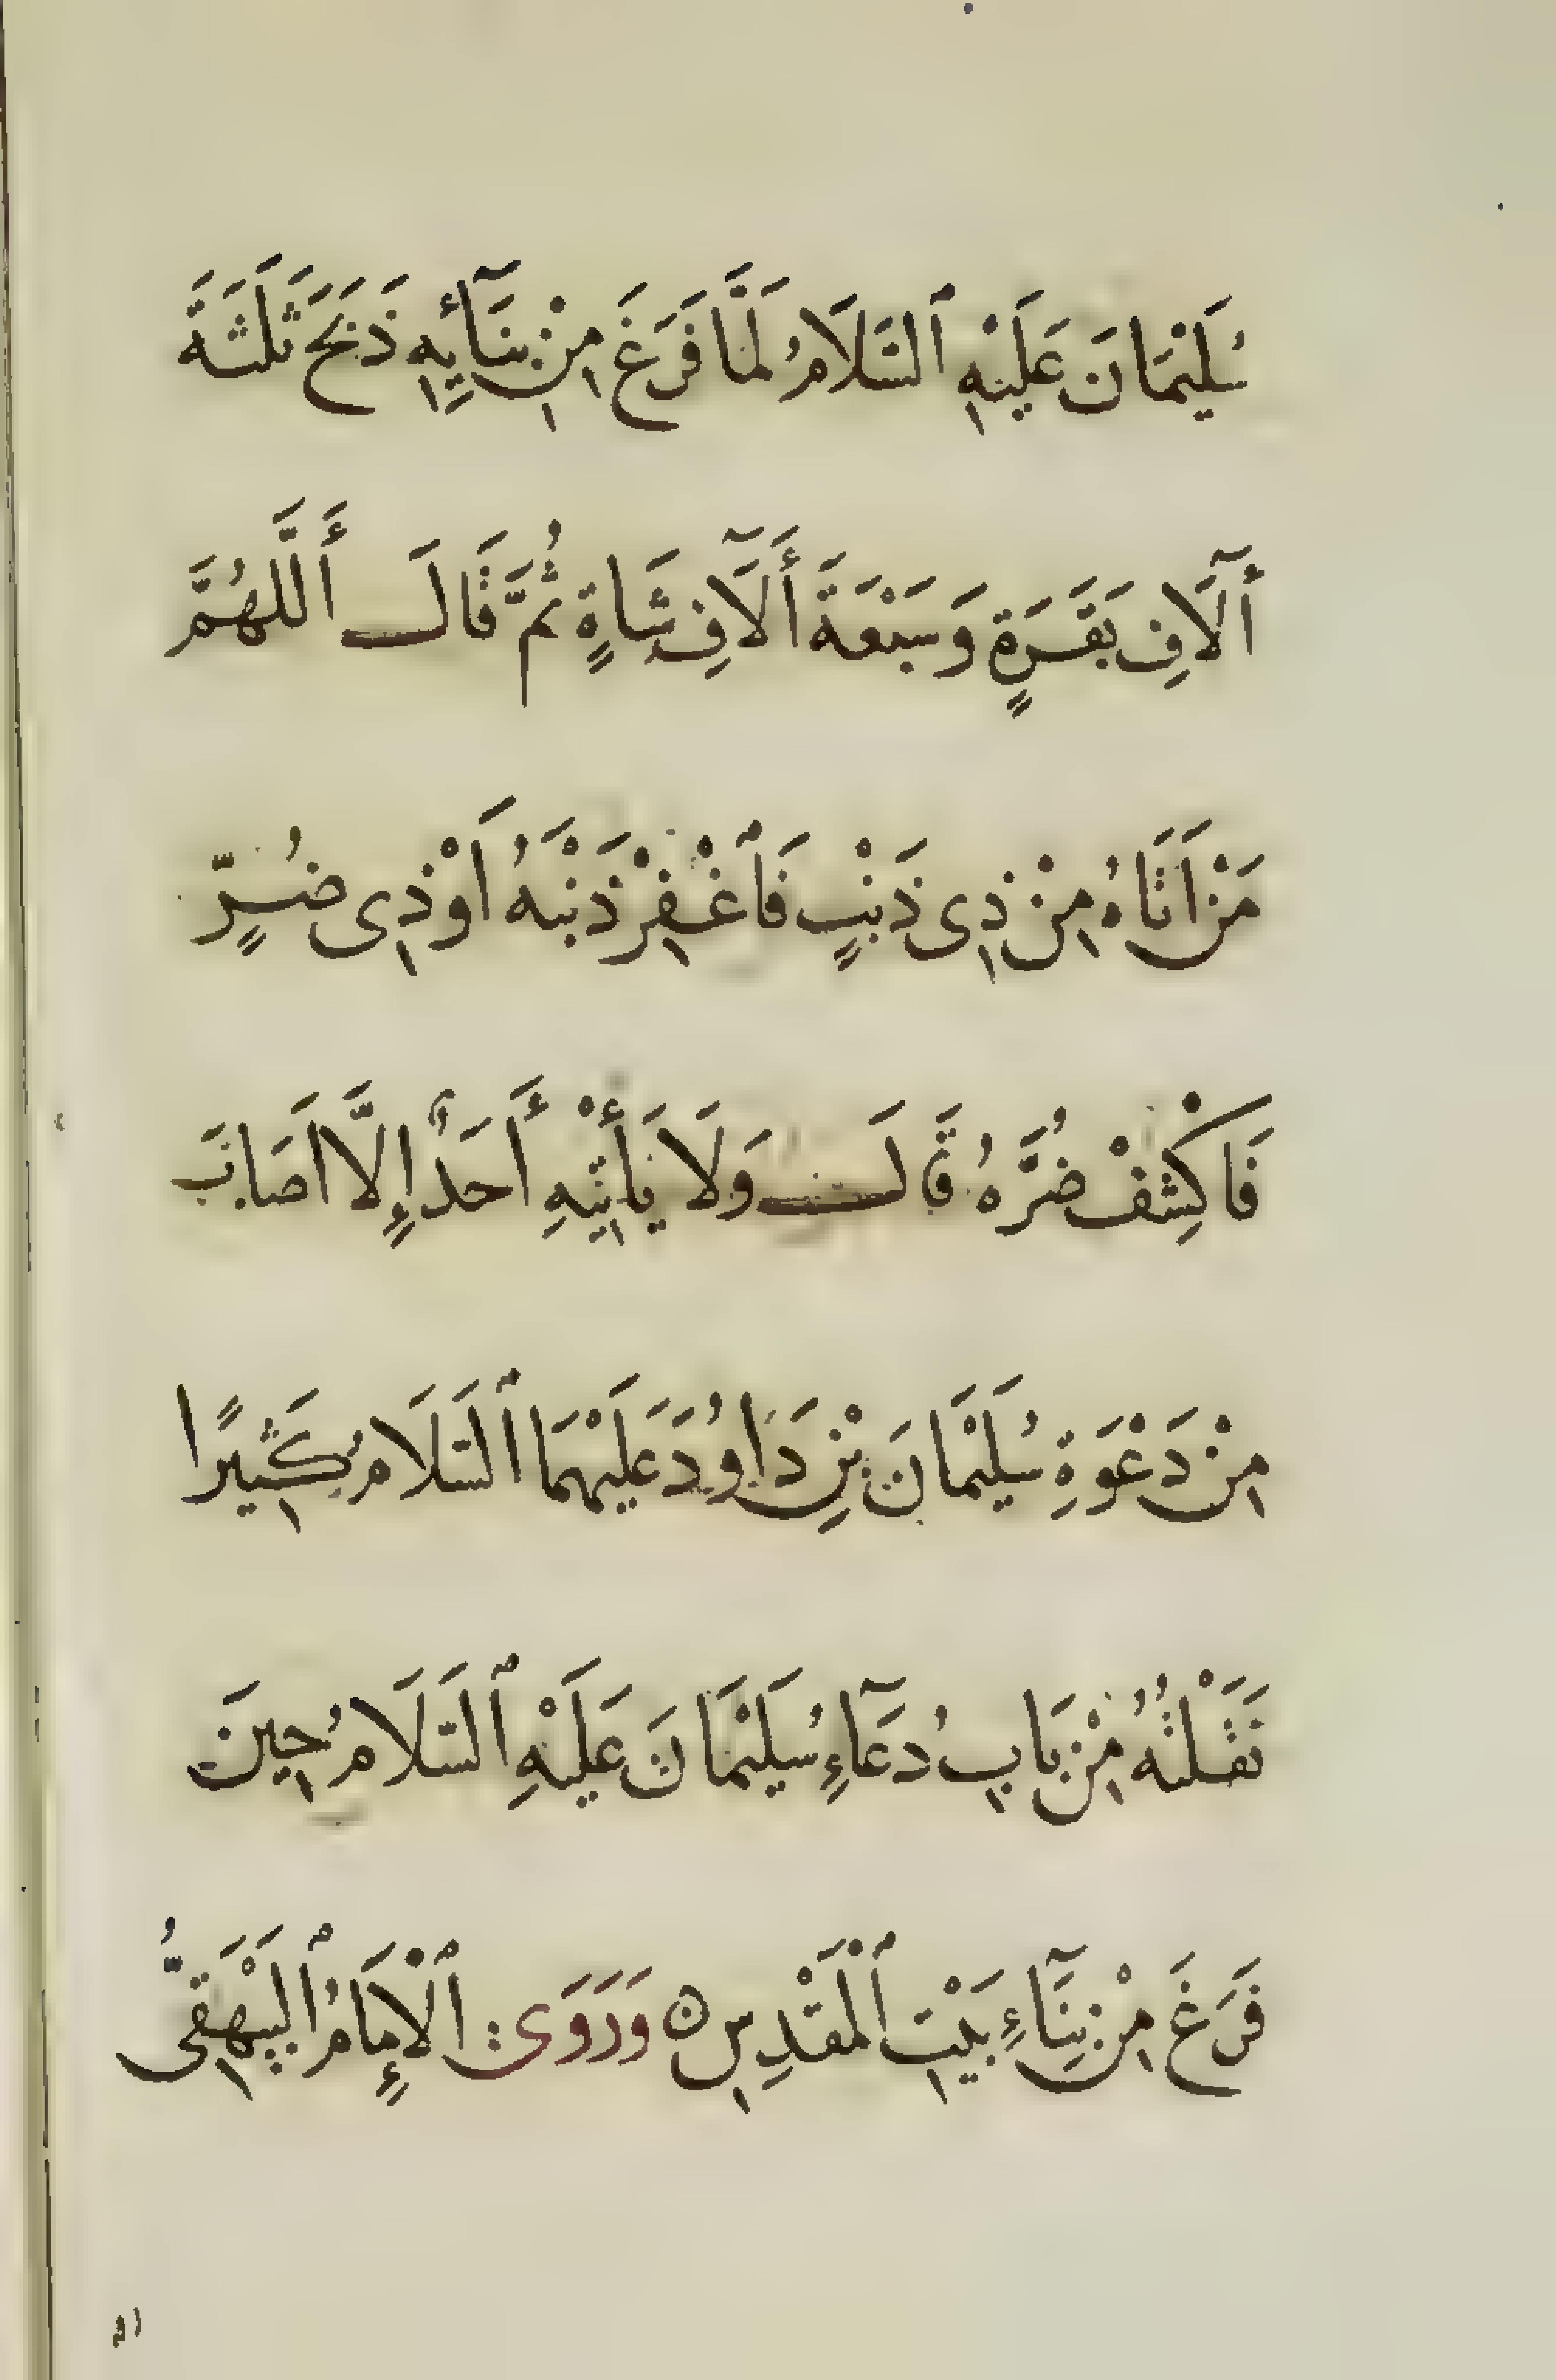 سُلَيْمَانَ عَلَيْهِ ٱلسَّلَامُ لَمَّا فَرَغَ مِنْ بِنَآئِهِ ذَبَحَ ثَلَثَةَ
أَلَآفِ بَقَرَةٍ وَسَبْعَةَ أَلَآفِ شَاةٍ ثُمَّ قَالَ أَللَّهُمَّ
مَنْ اَتَاهُ مِنْ ذِى ذَنْبٍ فَٱغْفِرْ ذَنْبَهُ اَوْ ذِى ضُرٍّ
فَاكْشِفْ ضُرَّهُ قَالَ وَلَا يَأْتِيْهِ أَحَدٌ إِلَّا اَصَابَ
مِنْ دَعْوَةِ سُلَيْمَانَ بْنِ دَاوُدَ عَلَيْهِمَا ٱلسَّلَامُ كَثِيرًا
نَقَلْتُهُ مِنْ بَابِ دُعَآءِ سُلَيْمَانَ عَلَيْهِ ٱلسَّلَامُ حِينَ
فَرَغَ مِنْ بِنَآءِ بَيْتِ ٱلْمَقْدِسِ وَرَوَى ٱلْإِمَامُ ٱلْبَيْهَقِىُّ